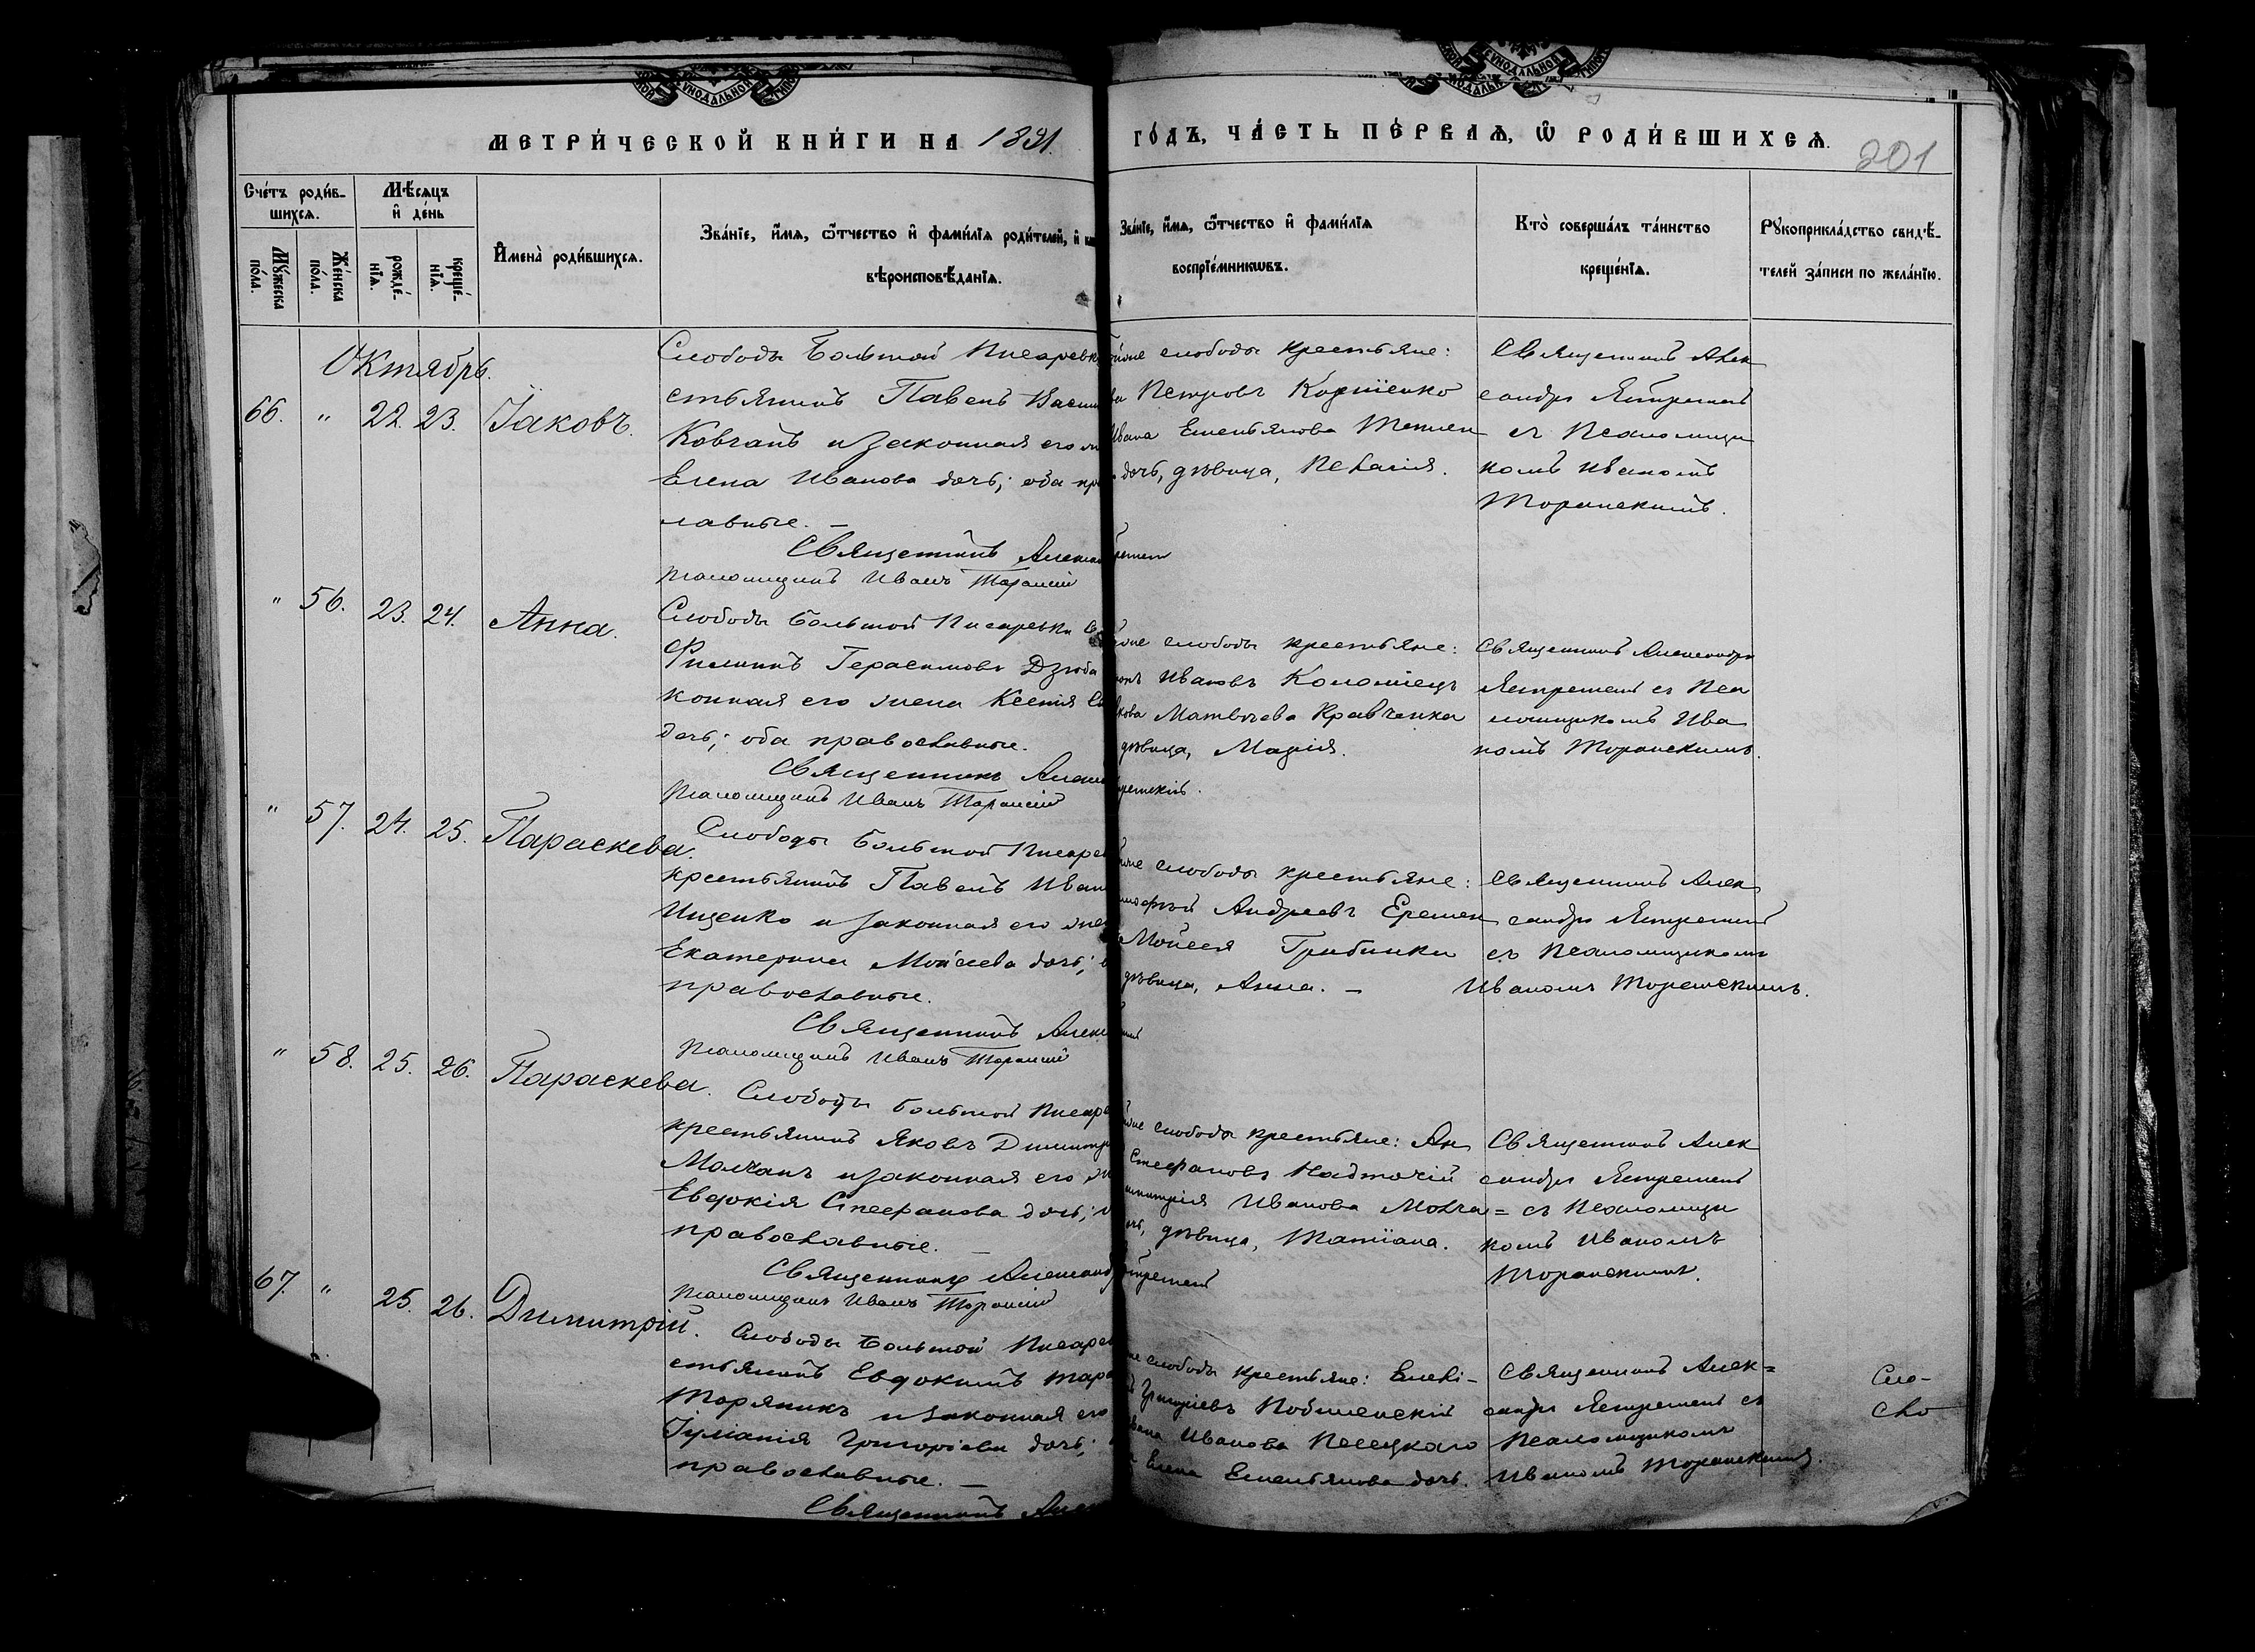 МЕТРИ́ЧЕСКОЙ КНИ́ГИ НА 1891. ГО́ДЪ, ЧА́СТЬ ПЕ́РВАѦ, Ѽ РОДИ́ВШИХСѦ.
201
Сче́тъ роди́в-
шихсѧ.
Мѣ́сѧцъ
и҆ де́нь
Мꙋ́жеска
по́ла.
Же́нска
по́ла.
рожде́-
нїѧ.
креще́-
нїѧ.
И҆мена̀ роди́вшихсѧ.
Зва́нїе, и҆́мѧ, ѻ҆́тчество и҆ фами́лїѧ роди́телей, и҆
вѣроисповѣ́данїѧ.
Зва́нїе, и҆́мѧ, ѻ҆́тчество и҆ фами́лїѧ
воспрїе́мникѡвъ.
Кто̀ соверша́лъ та́инство
креще́нїѧ.
Рꙋкоприкла́дство свидѣ́-
телей за́писи по жела́нїю.
Октябрь.
66. " 22. 23. Іаковъ.
Слободы Большой Писаревк
стьянинъ Павелъ Васил
Ковганъ и законная его
Елена Иванова дочь; оба пр
лавные. –
Священникъ Александ
Псаломщикъ Иванъ Торанский
слободы крестьяне:
Петровъ Корніенко
Ивана Емельянова
дочь, дѣвица, Пелагія.
Священникъ Алек
сандръ Ястремский
съ Псаломщи
комъ Иваномъ
Торанскимъ.
" 56. 23. 24. Анна.
Слободы Большой Писаревки
Филиппъ Герасимовъ Дзюба
конная его жена Ксенія
дочь; оба православные.
Священникъ Алекс
Псаломщикъ Иванъ Торанский
слободы крестьяне:
Ивановъ Коломіецъ
Матвѣева Кравченка
дѣвица, Марія.
Священникъ Александръ
Ястремский съ Пса
ломщикомъ Ива
номъ Торанскимъ.
" 57. 24. 25. Параскева.
Слободы Большой Писарев
крестьянинъ Павелъ Иван
Ищенко и законная его же
Екатерина Мойсеева дочь;
православные.
Священникъ Алекс
Псаломщикъ Иванъ Торанский
слободы крестьяне:
Андреевъ Еремен
Мойсея Грибинки
дѣвица, Анна. –
Священникъ Алек
сандръ Ястремский
съ Псаломщикомъ
Иваномъ Торанскимъ.
" 58. 25. 26. Параскева.
Слободы Большой Писар
крестьянинъ Яковъ Димитр
Молчанъ и законная его
Евдокія Стефанова дочь;
православные. –
Священникъ Александ
Псаломщикъ Иванъ Торанский
слободы крестьяне: Ан
Стефановъ Надточій
Иванова Молча=
дѣвица, Татіана.
Священникъ Алек
сандръ Ястремский
съ Псаломщи
комъ Иваномъ
Торанскимъ.
67. " 25. 26. Димитрій.
Слободы Большой Писарев
стьянинъ Евдокимъ Тара
Торяникъ и законная его
Іуліанія Григоріева дочь;
православные. –
Священникъ Алек
слободы крестьяне:
Григоріевъ
Иванова
Елена Емельянова дочь.
Священникъ Алек=
сандръ Ястремский съ
Псаломщикомъ
Иваномъ Торанскимъ.